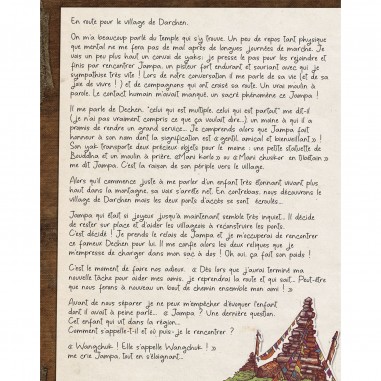 En route pour le village de Darchen.
On m'a beaucoup parlé du temple qui s'y trouve. Un peu de repos tant physique
que mental ne me fera pas de mal après de longues journées de marche. Je
vais un peu plus haut un convoi de yaks; je presse le pas pour les rejoindre et
finis par rencontrer Jampa, un pisteur fort endurant et souriant avec qui je
sympathise très vite ! Lors de notre conversation il me parle de sa vie (et de sa
joie de vivre ! ) et de compagnons qui ont croisé sa route. Un vrai moulin à
parole. Le contact humain m'avait manqué, un sacré phénomène ce Jampa !
Il me parle de Dechen, "celui qui est multiple, celui qui est partout" me dit-il
(je n'ai pas vraiment compris ce que ça voulait dire...), un moine à qui il a
promis de rendre un grand service... Je comprends alors que Jampa fait
honneur à son nom dont la signification est « gentil, amical et bienveillant » !
Son yak transporte deux précieux objets pour le moine : une petite statuette de
Bouddha et un moulin à prière, «Mani korlo » ou « Mani chuskor en tibétain »
me dit Jampa. C'est la raison de son périple vers le village.
Alors qu'il commence juste à me parler d'un enfant très étonnant vivant plus
haut dans la montagne, sa voix s'arrête net. En contrebas, nous découvrons le
village de Darchen mais les deux ponts d'accès se sont écroulés...
Jampa qui était si joyeux jusqu'à maintenant semble très inquiet... Il décide
de rester sur place et d'aider les villageois à reconstruire les ponts.
C'est décidé ! Je prends le relais de Jampa et je m'occuperai de rencontrer
ce fameux Dechen pour lui. Il me confie alors les deux reliques que je
m'empresse de charger dans mon sac à dos ! Oh oui, ça fait son poids !
C'est le moment de faire nos adieux. « Dès lors que j'aurai terminé ma
nouvelle tâche pour aider mes amis, je reprendrai la route et qui sait... Peut-être
que nous ferons à nouveau un bout de chemin ensemble mon ami ! »
Avant de nous séparer je ne peux m'empêcher d'évoquer l'enfant
dont il avait à peine parlé... « Jampa ? Une dernière question.
Cet enfant qui vit dans la région...
Comment s'appelle-t-il et où puis-je le rencontrer ?
« Wangchuk ! Elle s'appelle Wangchuk ! »
me crie Jampa, tout en s'éloignant...